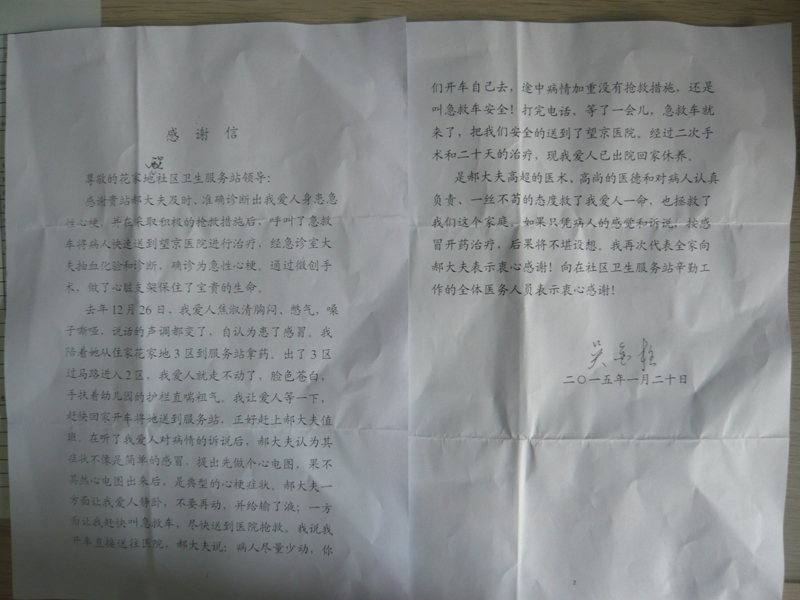 感 谢 信
尊敬的花家地社区卫生服务站领导：
感谢贵站郝大夫及时、准确诊断出我爱人身患急
性心梗，并在采取积极的抢救措施后，呼叫了急救
车将病人快速送到望京医院进行治疗，经急诊室大
夫抽血化验和诊断，确诊为急性心梗。通过微创手
术，做了心脏支架保住了宝贵的生命。
去年12月26日，我爱人焦淑清胸闷、憋气，嗓
子嘶哑、说话的声调都变了，自认为患了感冒。我
陪着她从住家花家地3区到服务站拿药。出了3区
过马路进入2区，我爱人就走不动了，脸色苍白，
手扶着幼儿园的护栏直喘粗气。我让爱人等一下，
赶快回家开车将她送到服务站，正好赶上郝大夫值
班。在听了我爱人对病情的诉说后，郝大夫认为其
症状不像是简单的感冒，提出先做个心电图，果不
其然心电图出来后，是典型的心梗症状。郝大夫一
方面让我爱人静卧，不要再动，并给输了液；一方
面让我赶快叫急救车，尽快送到医院抢救。我说我
开车直接送往医院，郝大夫说：病人尽量少动，你
们开车自己去，途中病情加重没有抢救措施，还是
叫急救车安全！打完电话，等了一会儿，急救车就
来了，把我们安全的送到了望京医院。经过二次手
术和二十天的治疗，现我爱人已出院回家休养。
是郝大夫高超的医术、高尚的医德和对病人认真
负责、一丝不苟的态度救了我爱人一命，也拯救了
我们这个家庭。如果只凭病人的感觉和诉说，按感
冒开药治疗，后果将不堪设想。我再次代表全家向
郝大夫表示衷心感谢！向在社区卫生服务站辛勤工
作的全体医务人员表示衷心感谢！
吴金柱
二〇一五年一月二十日
2